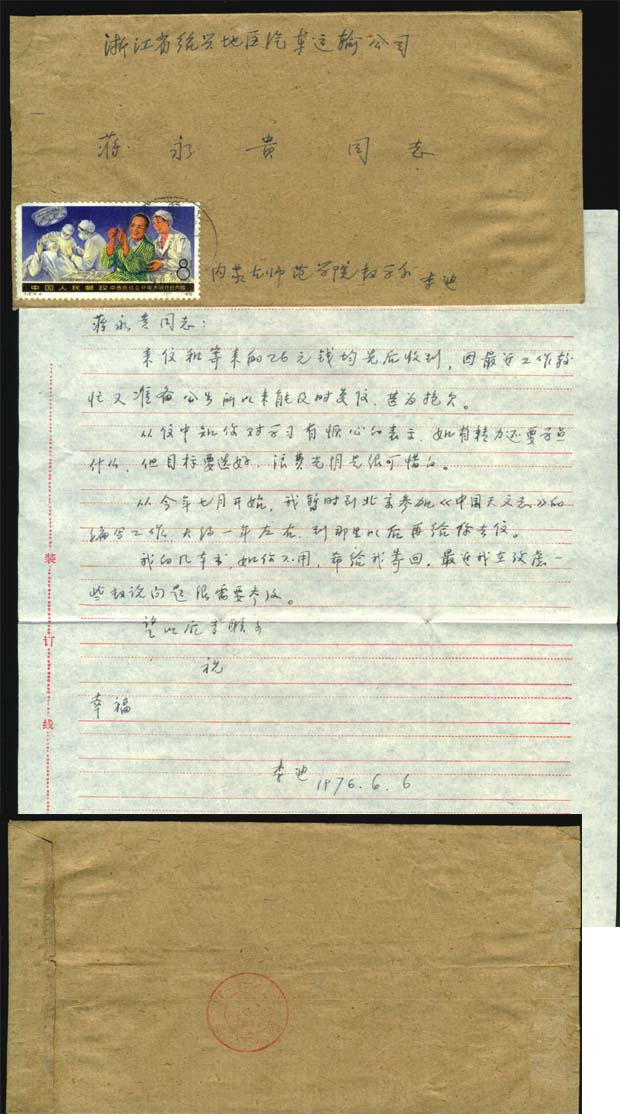 浙江省绍兴地区汽车运输公司
蒋永贵同志
8
中国人民邮政
内蒙古师范学院数学系 李迪
蒋永贵同志:
来信和寄来的26元钱均先后收到,因最近工作较
忙又准备公出所以未能及时复信,甚为抱欠。
从信中知你对学习有恒心的表示,如有精力还要学点
什么,但目标要选好,浪费光阴是很可惜的。
从今年七月开始,我暂时到北京参加《中国天文志》的
编写工作,大约一年左右,到那里以后再给你去信。
我的几本书,如你不用,希给我寄回,最近我在考虑一
些数说问题很需要参考。
望以后多联系
祝
幸福
李迪
1976.6.6
装
订
线